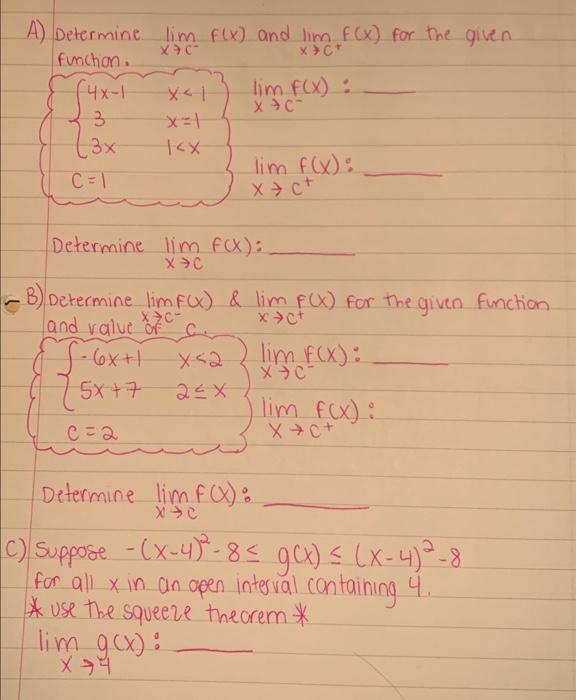 A) Determine lim x→c⁻ f(x) and lim x→c⁺ f(x) for the given
function.
4x-1 x<1
3 x=1
3x 1<x
c=1
lim x→c⁻ f(x) : ____
lim x→c⁺ f(x) : ____
Determine lim x→c f(x): ____
B) Determine lim x→c⁻ f(x) & lim x→c⁺ f(x) for the given function
and value of c.
-6x+1 x<2
5x+7 2≤x
c=2
lim x→c⁻ f(x) : ____
lim x→c⁺ f(x) :
Determine lim x→c f(x) : ____
C) Suppose -(x-4)²-8 ≤ g(x) ≤ (x-4)²-8
for all x in an open interval containing 4.
* use the squeeze theorem *
lim x→4 g(x) : ____